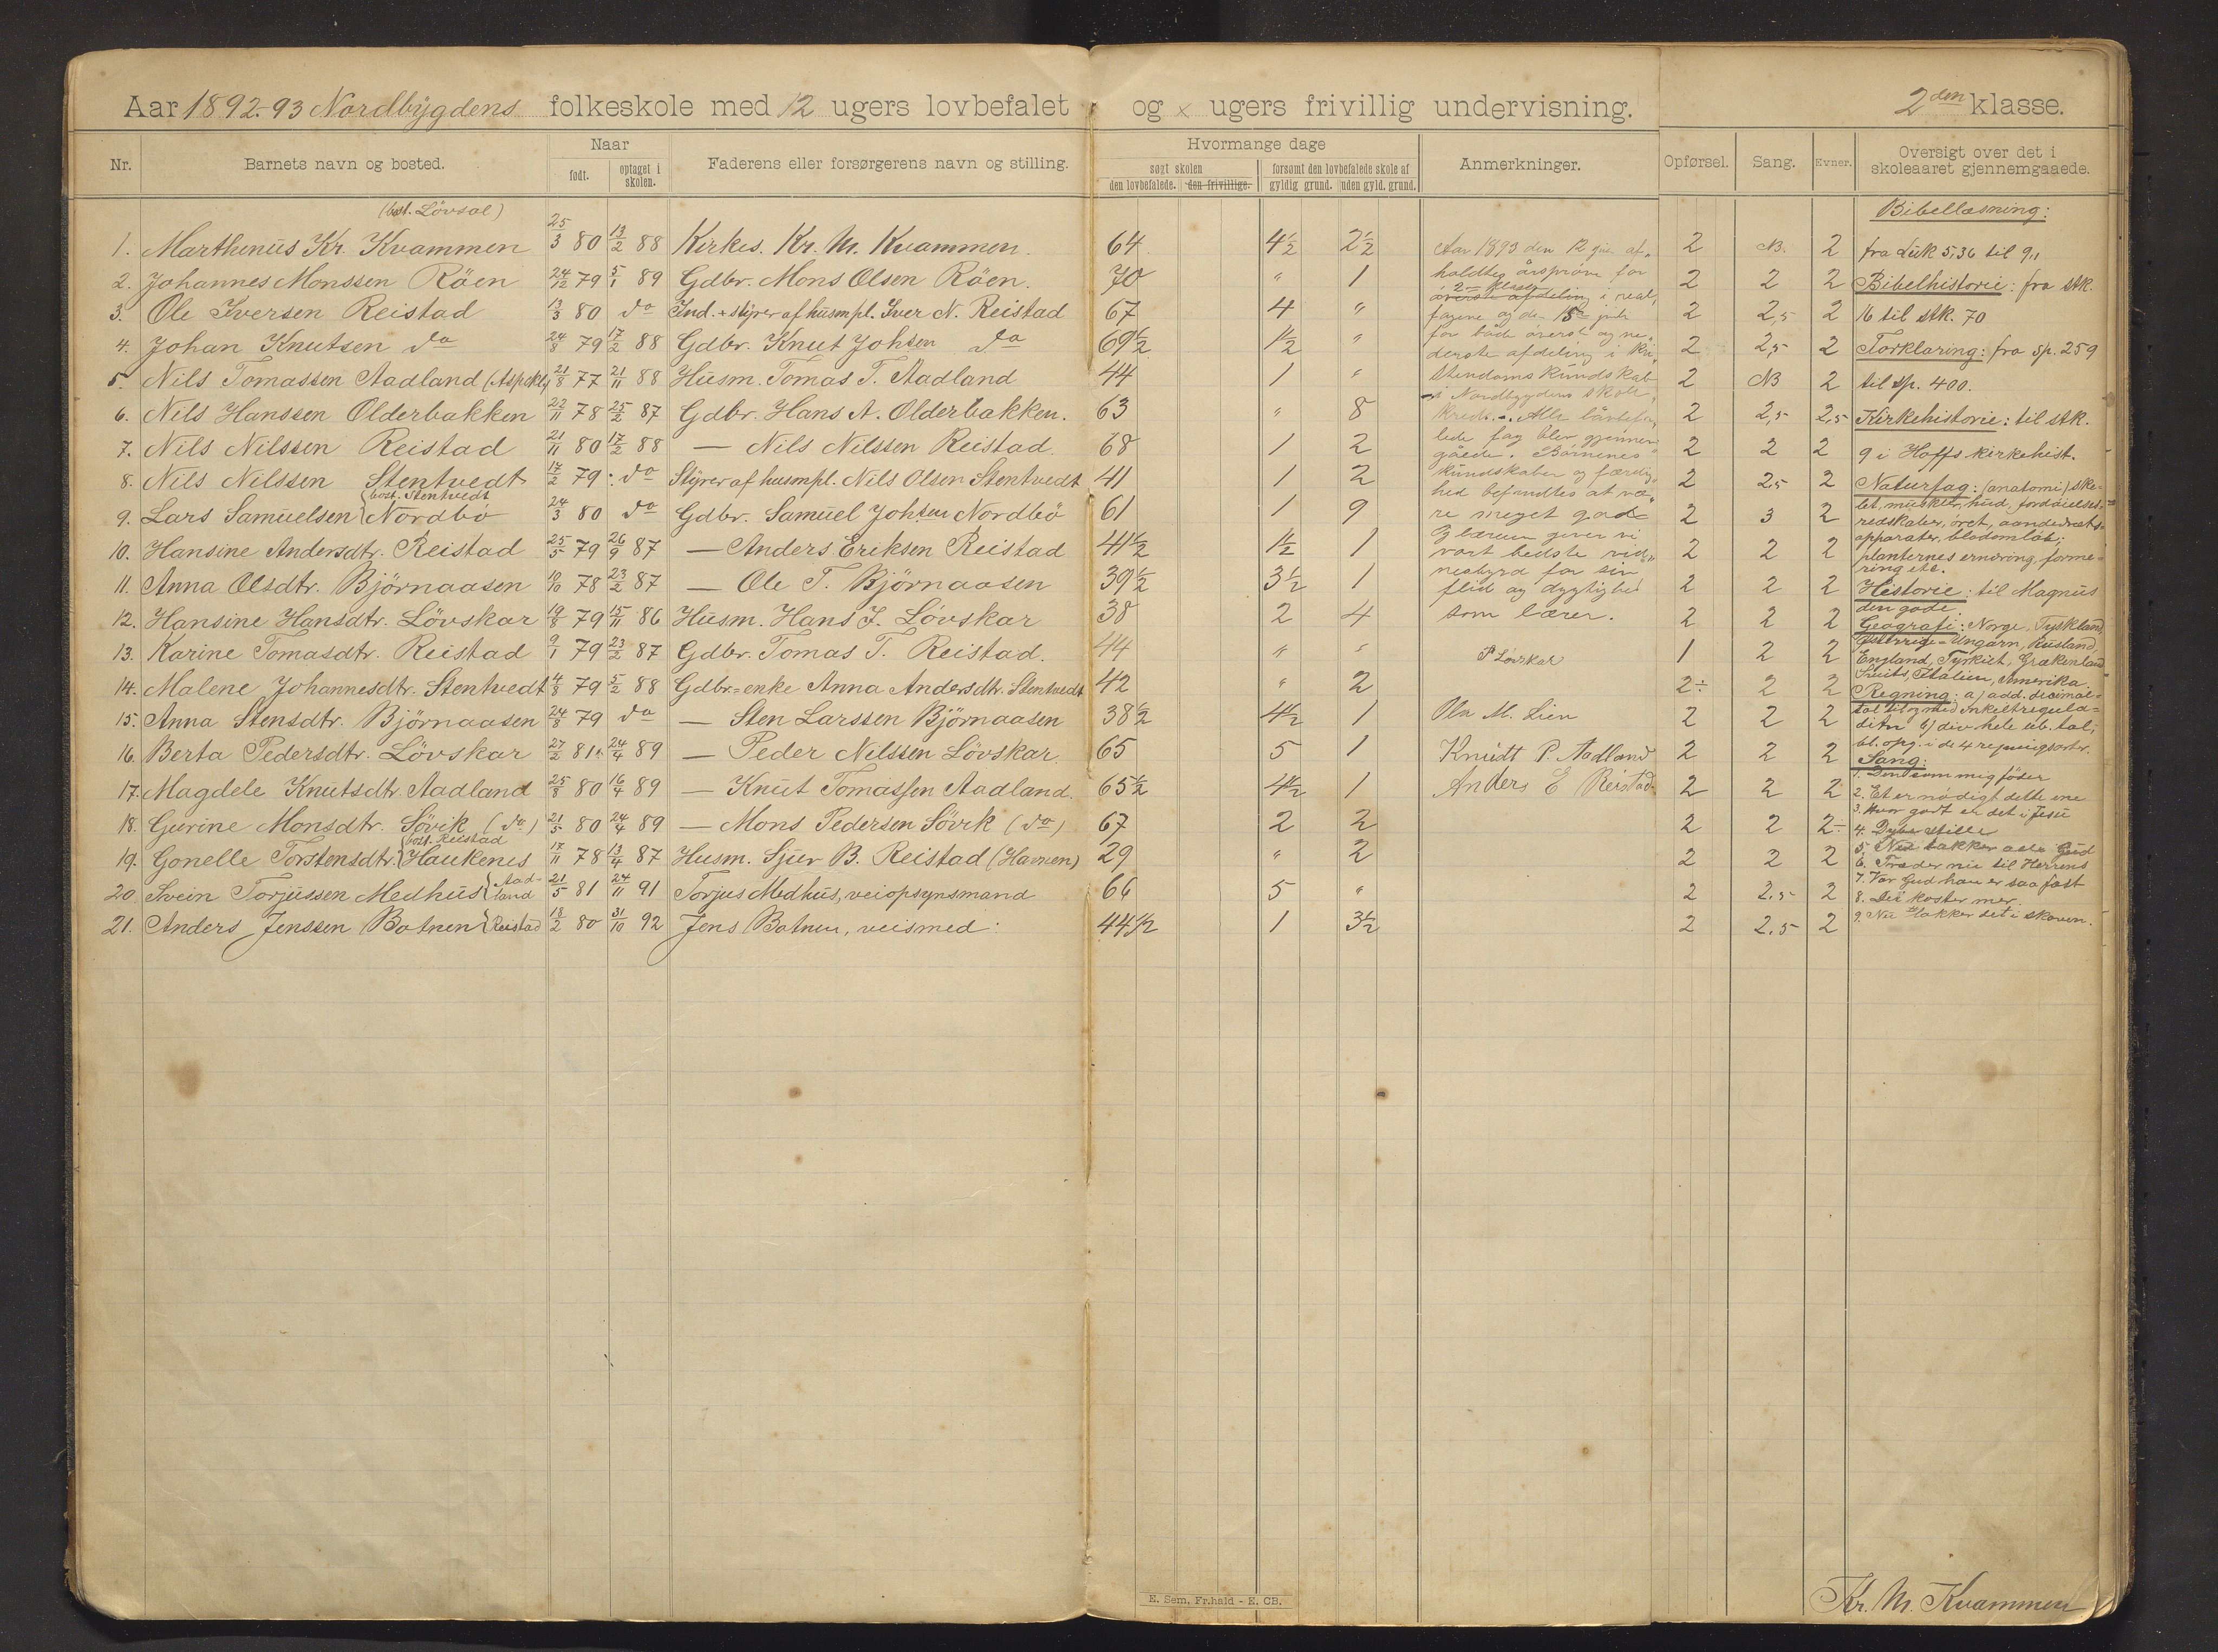 Aar 1892-93 Nordbygdens folkeskole med 12 ugers lovbefalet og x ugers frivillig undervisning. 2den klasse.
Nr. Barnets navn og bosted. Naar født. optaget i skolen. Faderens eller forsørgerens navn og stilling. Hvormange dage søgt skolen den lovbefalede. den frivillige. forsømt den lovbefalede skole af gyldig grund. uden gyld. grund. Anmerkninger. Opførsel. Sang. Evner. Oversigt over det i skoleaaret gjennemgaaede.
(bost. Lövsal)
1. Marthenus Kr. Kvammen 25/3 80 13/2 88 Kirkes. Kr. M. Kvammen. 64 4 1/2 2 1/2 2 NB. 2
2. Johannes Monssen Röen 24/12 79 5/1 89 Gdbr. Mons Olsen Röen. 70 " 1 2 2 2
3. Ole Iversen Reistad 13/3 80 do Ind. + styrer af husmpl. Iver N. Reistad 67 4 " 2 2,5 2
4. Johan Knutsen do 24/8 79 17/2 88 Gdbr. Knut Johsen do 69 1/2 1/2 " 2 2,5 2
5. Nils Tomassen Aadland 21/8 77 21/11 88 Husm. Tomas T. Aadland 44 1 " 2 NB 2
6. Nils Hanssen Olderbakken 22/11 78 25/2 87 Gdbr. Hans A. Olderbakken. 63 " 8 2 2,5 2,5
7. Nils Nilssen Reistad 21/11 80 17/2 88 — Nils Nilssen Reistad. 68 1 2 2 2 2
8. Nils Nilssen Stentvedt 17/2 79 do Styrer af husmpl. Nils Olsen Stentvedt 41 1 2 2 2,5 2
bost. Stentvedt
9. Lars Samuelsen Nordbö 24/3 80 do Gdbr. Samuel Johsen Nordbö 61 1 9 2 3 2
10. Hansine Andersdtr. Reistad 25/5 79 26/9 87 — Anders Eriksen Reistad 41 1/2 1/2 1 2 2 2
11. Anna Olsdtr. Björnaasen 10/10 78 23/2 87 — Ole T. Björnaasen 39 1/2 3 1/2 1 2 2 2
12. Hansine Hansdtr. Lövskar 19/8 79 15/11 86 Husm. Hans J. Lövskar 38 2 4 2 2 2
13. Karine Tomasdtr. Reistad 9/1 79 23/2 87 Gdbr. Tomas T. Reistad. 44 " " 1 2 2
14. Malene Johannesdtr. Stentvedt 4/8 79 5/2 88 Gdbr=enke Anna Andersdtr. Stentvedt 42 " 2 2÷ 2 2
15. Anna Stensdtr. Björnaasen 24/8 79 do — Sten Larssen Björnaasen 38 1/2 4 1/2 1 2 2 2
16. Berta Pedersdtr. Lövskar 27/2 81 24/4 89 — Peder Nilssen Lövskar. 65 5 1 2 2 2
17. Magdele Knutsdtr. Aadland 25/8 80 16/4 89 — Knut Tomassen Aadland. 65 1/2 4 1/2 1 2 2 2
18. Gurine Monsdtr. Sövik (do) 21/5 80 24/4 89 — Mons Pedersen Sövik (do) 67 2 2 2 2 2÷
bost. Reistad
19. Gonelle Torstensdtr. Haukenes 17/11 78 13/4 87 Husm. Sjur B. Reistad (Havnen) 29 " 2 2 2 2
20. Svein Torjussen Medhus Aadland 21/5 81 24/11 91 Torjus Medhus, veiopsynsmand 66 5 " 2 2.5 2
21. Anders Jenssen Botnen Reistad 18/2 80 31/10 92 Jens Botnen, veismed: 44 1/2 1 3 1/2 2 2.5 2
Aar 1893 den 12 juni af-
holdtes årspröve for
2den klasse
överste afdeling i real-
fagene og den 15de juni
for både överst og ne-
derste afdeling i kri-
stendomskundskab
i Nordbygdens skole-
kreds. Alle lovbefa-
lede fag blev gjennem-
gåede. Börnenes
kundskaber og færdig-
hed befandtes at væ-
re meget gode
Og læreren giver vi
vort bedste vid-
nesbyrd for sin
flid og dygtighed
som lærer.
P Lövskar
Ola M. Lien
Knudt P. Aadland
Anders E Reistad.
Bibellæsning:
fra Luk 5,36 til 9,1
Bibelhistorie: fra stk.
16 til stk. 70
Forklaring: fra sp. 259
til sp. 400.
Kirkehistorie: til stk.
9 i Hoffs kirkehist.
Naturfag: (anatomi) ske-
let, muskler, hud, fordöielses-
redskaber, öret, aandedræts-
apparater, blodomlöb;
planternes ernæring, forme-
ring etc.
Historie: til Magnus
den gode.
Geografi: Norge, Tyskland,
Østerrige=Ungarn, Rusland,
England, Tyrkiet, Grækenland
Suits, Italien, Amerika.
Regning: a) add. decimal-
tal til og med enkelt reguladitri
b) div. hele ub. tal;
bl. opg. i de 4 regningsarter.
Sang:
1. Den som mig föder
2. Et er nödigt dette ene
3. Hvor godt er det i Jesu
4. Dybe stille
5. Nu takker alle Gud
6. Træder nu til Herrens
7. Vor Gud han er saa fast
8. Det koster mer.
9. Nu lakker det i skoven.
E. Sem, Fr.hald - E. CB.
Kr. M. Kvammen